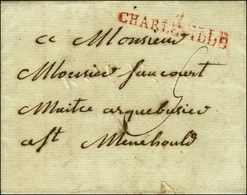 CHARLEVILLE
a Monsieur
Monsieur faucourt
Maitre arquebusier
a st Menehould